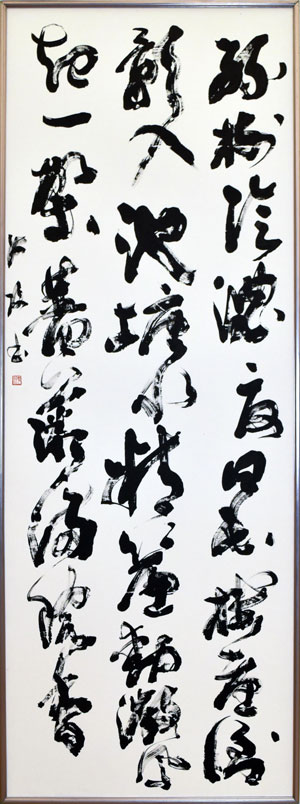 綠樹陰濃夏日長樓臺倒
影入池塘水精簾動微風
起一架薔薇滿院香
書